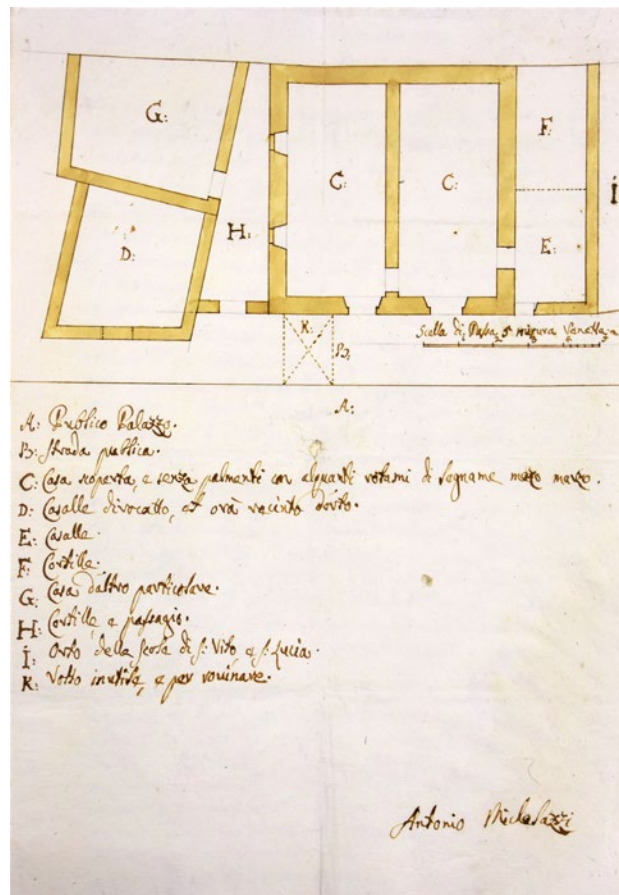 G:
F:
C:
C:
I
H:
D:
E:
K:
B:
Scalla di Passa 5 misura Veneta
A:
A: Publico Palazzo.
B: Strada publica.
C: Casa scoperta, e senza palmenti con alquanti rotami di legname mezo marzo.
D: Casalle divocatto, et ora recinto d'orto.
E: Casalle.
F: Cortille.
G: Casa d'altro particolare.
H: Cortille e passagio.
I: Orto della scola di S: Vito e S: Lucia.
K: Volto inutile, e per rovinare.
Antonio Michelazzi